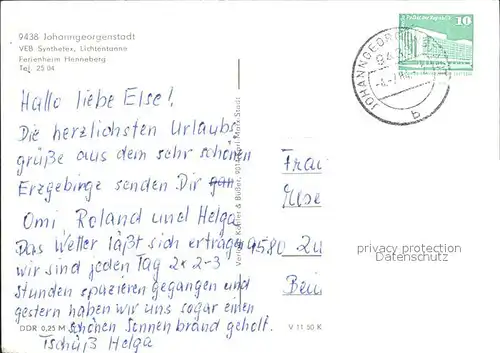 9438 Johanngeorgenstadt
VEB Synthetex, Lichtentanne
Ferienheim Henneberg
Tel. 25 04
Hallo liebe Else!
Die herzlichsten Urlaubs
grüße aus dem sehr schönen
Erzgebirge senden Dir gan
Omi, Roland und Helga
Das Wetter läßt sich ertragen
wir sind jeden Tag 2x 2-3
Stunden spazieren gegangen und
gestern haben wir uns sogar einen
schönen Sonnenbrand geholt.
Tschüß Helga
DDR 0,25 M
V 11 50 K
10
JOHANNGEORG
b
Frau
Else
9580 Zw
privacy protection
Datenschutz